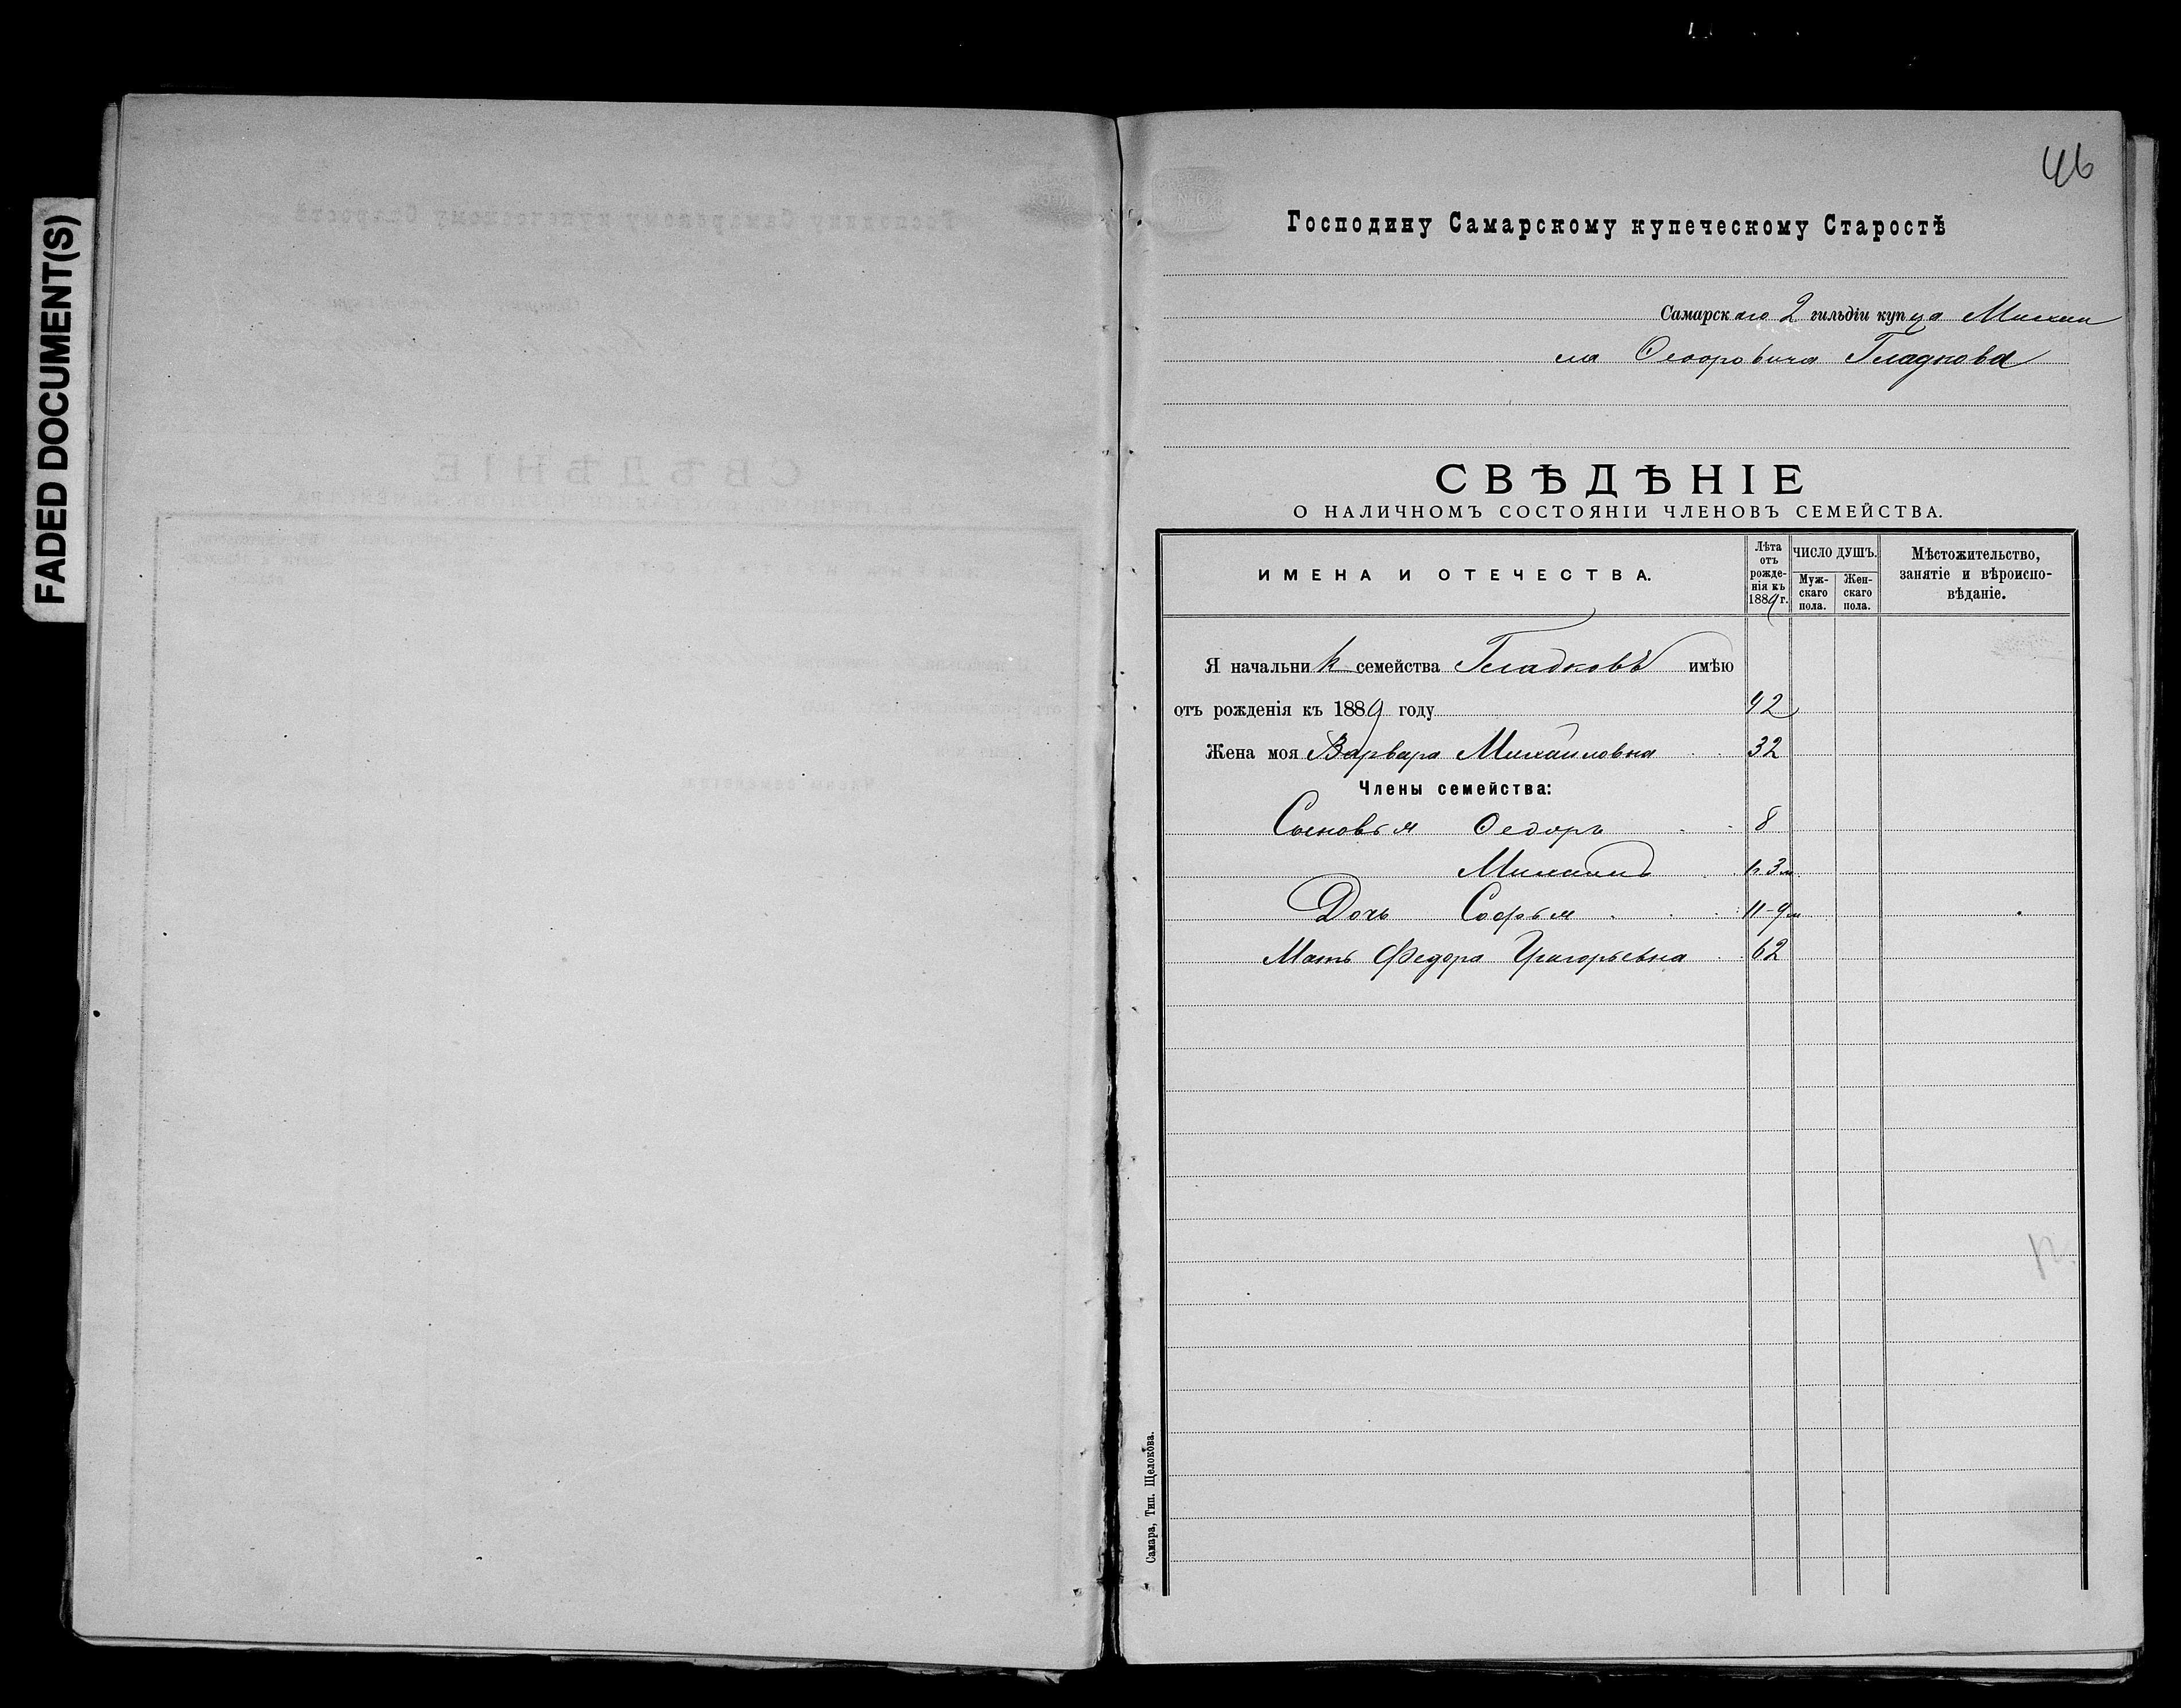 FADED DOCUMENT(S)
46
Господину Самарскому купеческому Старостѣ
Самарскаго 2 гильдіи купца Михаи
ла Ѳеодоровича Гладкова
СВѢДѢНІЕ
О НАЛИЧНОМЪ СОСТОЯНІИ ЧЛЕНОВЪ СЕМЕЙСТВА.
ИМЕНА И ОТЕЧЕСТВА.
Лѣта отъ рожденія къ 1889 г.
ЧИСЛО ДУШЪ.
Мужскаго пола.
Женскаго пола.
Мѣстожительство, занятіе и вѣроисповѣданіе.
Я начальник семейства Гладковъ имѣю
отъ рожденія къ 1889 году 42
Жена моя Варвара Михаиловна 32
Члены семейства:
Сыновья Ѳедоръ 8
Михаилъ 3 м
Дочь Софья 11-9 м
Мать Федора Григорьевна 62
Самара, Тип. Щелокова.